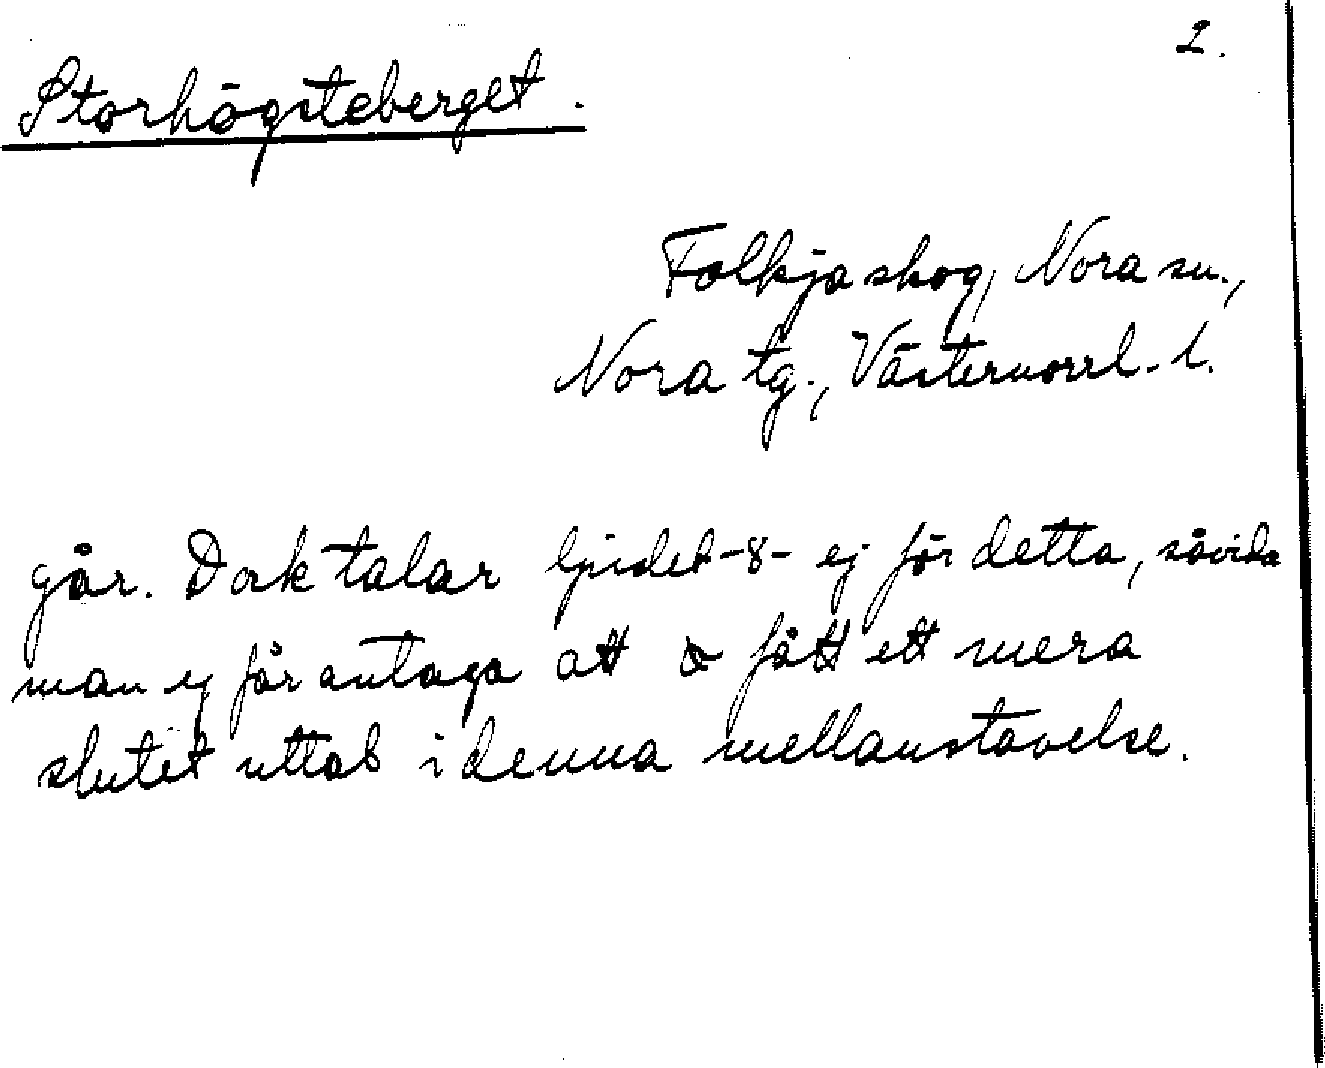 2.
Storhögsteberget.
Folkja skog, Nora sn.,
Nora tg., Västernorrl. l.
går. Dock talar ljudet -8- ej för detta, såvida
man ej får antaga att fått ett mera
slutet uttal i denna mellanstavelse.